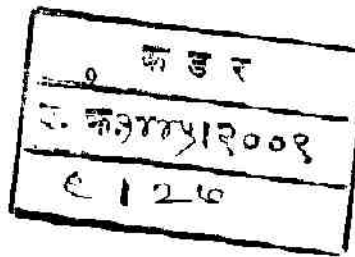 क ड र
द. क्र.७४४५/२००९
९ / २७